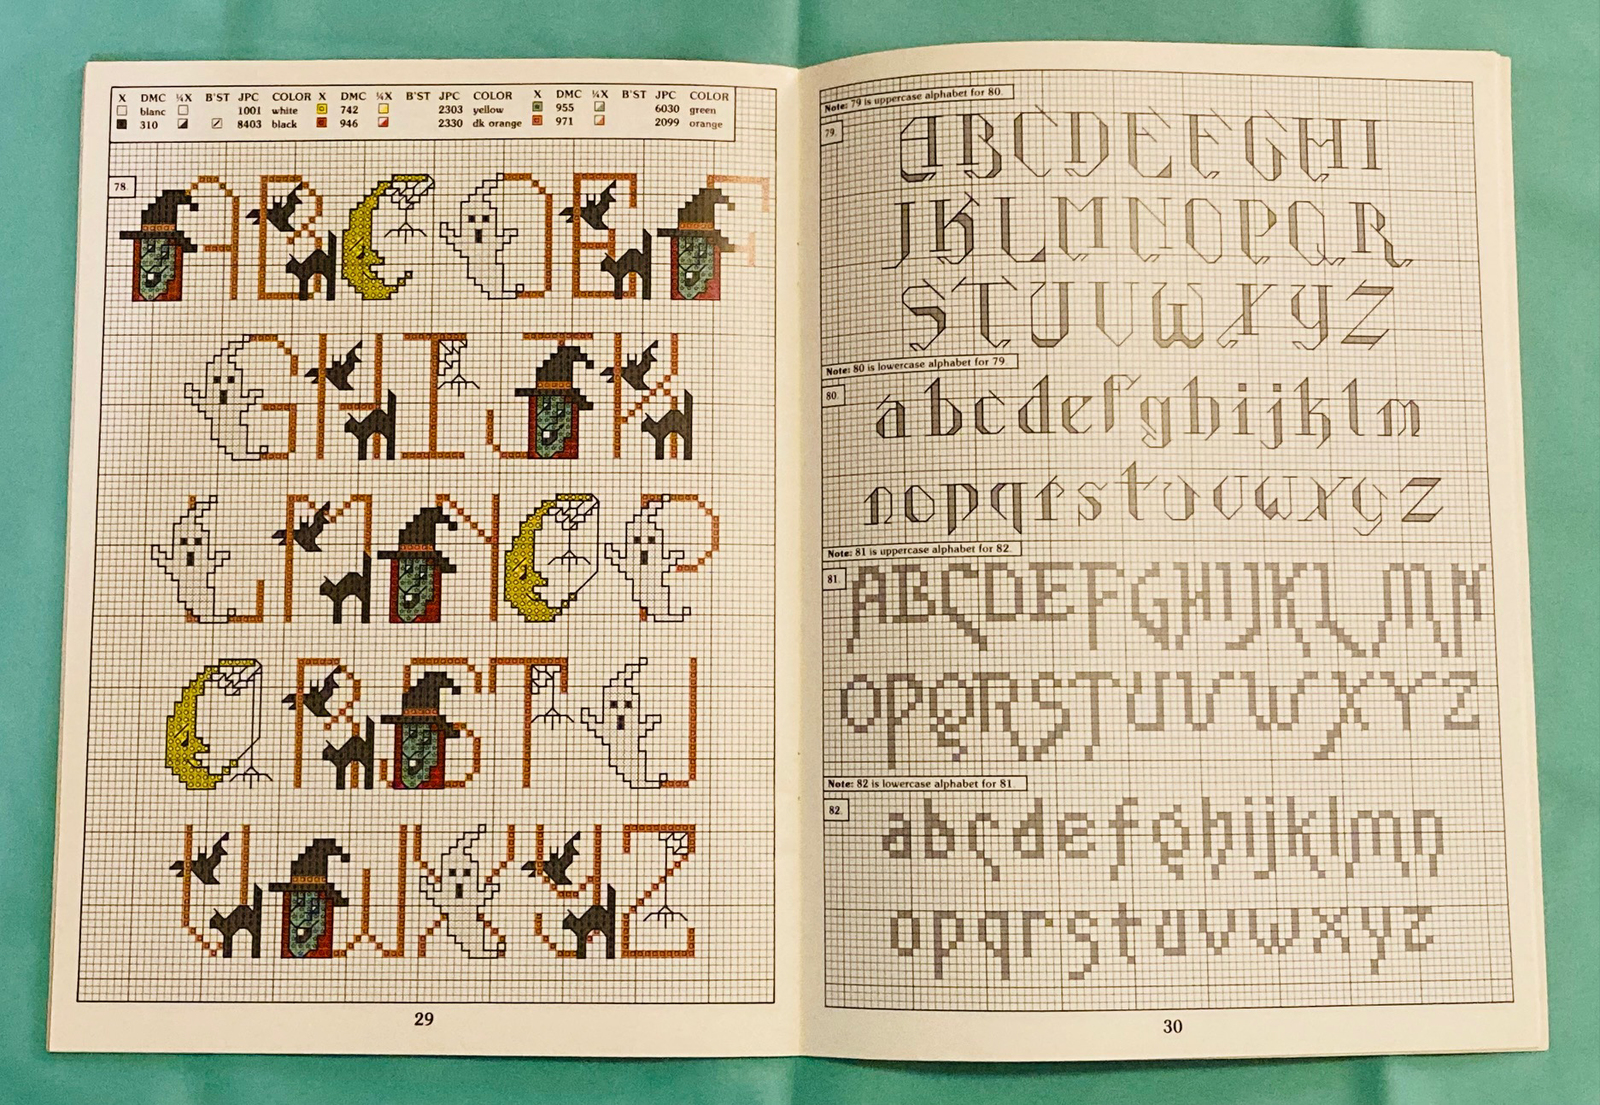 X DMC ¼X B'ST JPC COLOR X DMC ¼X B'ST JPC COLOR X DMC ¼X B'ST JPC COLOR
blanc 1001 white 742 2303 yellow 955 6030 green
310 8403 black 946 2330 dk orange 971 2099 orange
78.
A B C D E F
G H I J K
L M N O P
Q R S T U
V W X Y Z
29
Note: 79 is uppercase alphabet for 80.
79.
A B C D E F G H I
J K L M N O P Q R
S T U V W X Y Z
Note: 80 is lowercase alphabet for 79.
80.
a b c d e f g h i j k l m
n o p q r s t u v w x y z
Note: 81 is uppercase alphabet for 82.
81.
A B C D E F G H I J K L M N
O P Q R S T U V W X Y Z
Note: 82 is lowercase alphabet for 81.
82.
a b c d e f g h i j k l m n
o p q r s t u v w x y z
30